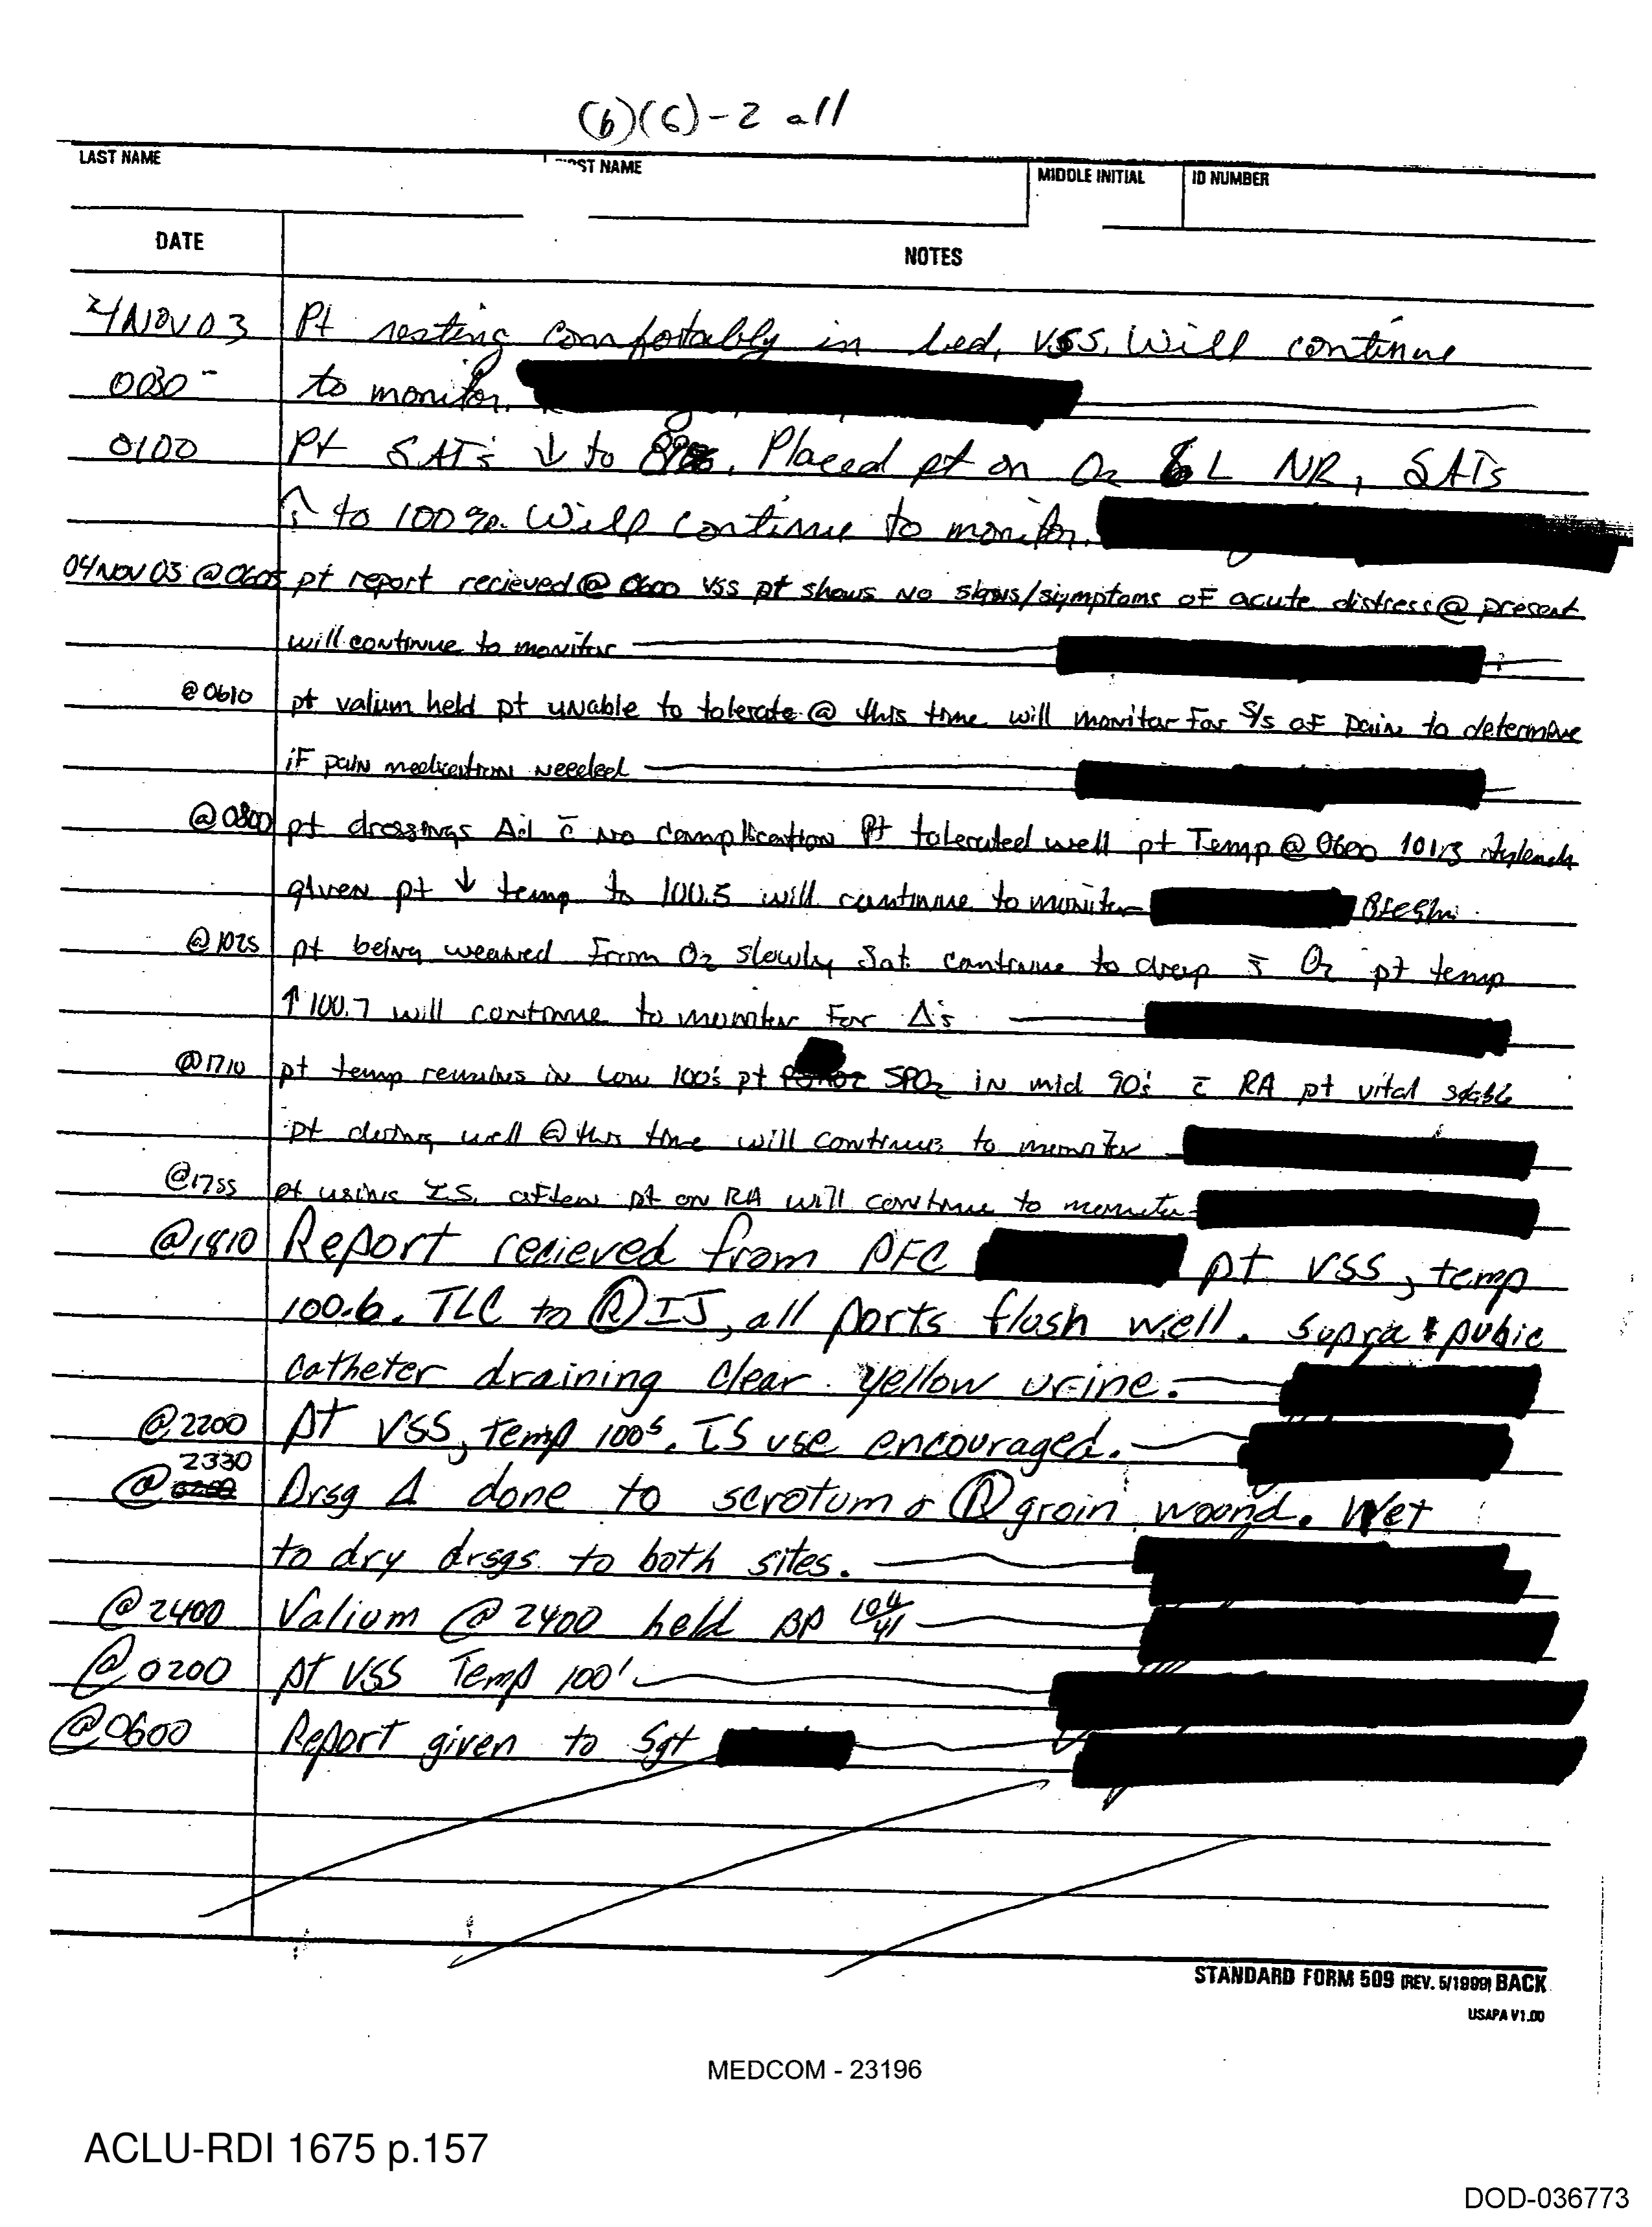 (b)(6)-2 all
LAST NAME
FIRST NAME
MIDDLE INITIAL
ID NUMBER
DATE
NOTES
4 NOV 03 Pt resting comfortably in bed, VSS. Will continue
0030 to monitor.
0100 Pt SATs ↓ to. Placed pt on O2 6L NR, SATs
↑ to 100%. Will continue to monitor.
04 NOV 03 @ 0605 pt report recieved @ 0600 VSS pt shows no signs/symptoms of acute distress @ present
will continue to monitor
@ 0610 pt valium held pt unable to tolerate @ this time will monitor for S/s of pain to determine
if pain medication needed
@ 0800 pt dressings Δ'd c̄ no complication Pt tolerated well pt Temp @ 0600 101.3
given pt ↓ temp to 100.5 will continue to monitor
@ 1025 pt being weaned from O2 slowly Sat continue to drop s̄ O2 pt temp
↑ 100.7 will continue to monitor for Δ's
@ 1710 pt temp remains in low 100's pt SPO2 in mid 90's c̄ RA pt vital stable
pt doing well @ this time will continue to monitor
@ 1755 pt using I.S. often pt on RA will continue to monitor
@ 1810 Report recieved from PFC pt VSS, temp
100.6. TLC to Ⓡ IJ, all ports flush well. Supra pubic
catheter draining clear yellow urine.
@ 2200 pt VSS, temp 100⁵. IS use encouraged.
2330
@ Drsg Δ done to scrotum & Ⓡ groin wound. Wet
to dry drsgs to both sites.
@ 2400 Valium @ 2400 held BP 104/41
@ 0200 pt VSS Temp 100¹
@ 0600 Report given to Sgt
STANDARD FORM 509 (REV. 5/1999) BACK
USAPA V1.00
MEDCOM - 23196
ACLU-RDI 1675 p.157
DOD-036773